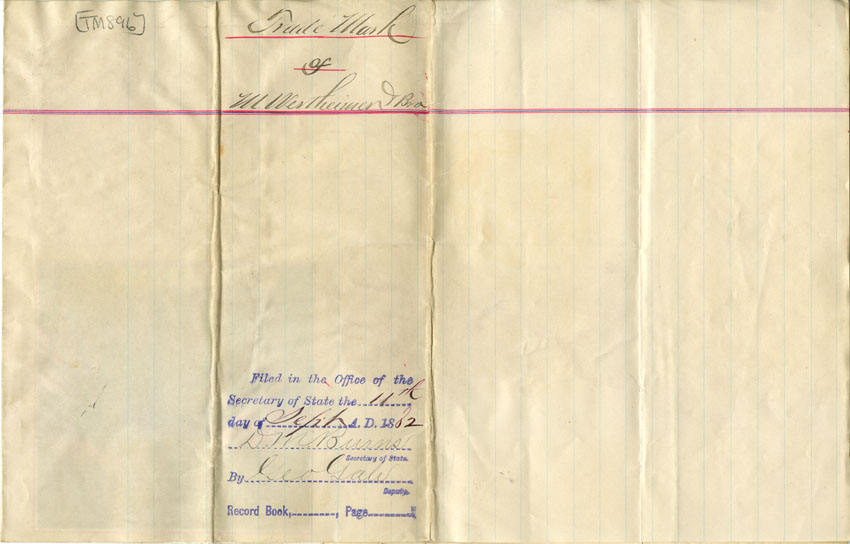 [TM896]
Trade Mark
of
M Wertheimer & Bro
Filed in the Office of the
Secretary of State the 11th
day of Sept A. D. 1882
D. M. Burns
Secretary of State.
By Geo
Deputy.
Record Book, , Page